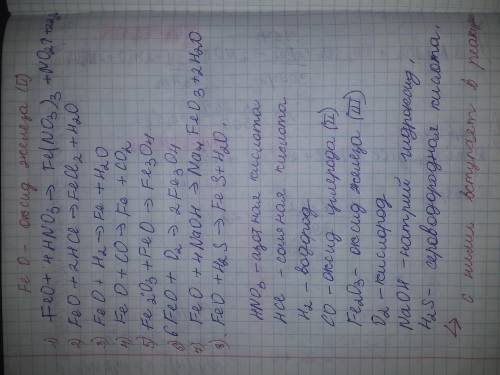 FeO - оксид железа (II)
1) FeO + 4HNO3 → Fe(NO3)3 + NO2↑ +
2) FeO + 2HCl → FeCl2 + H2O
3) FeO + H2 → Fe + H2O
4) FeO + CO → Fe + CO2
5) Fe2O3 + FeO → Fe3O4
6) 6FeO + O2 → 2Fe3O4
7) FeO + 4NaOH → Na4FeO3 + 2H2O
8) FeO + H2S → FeS + H2O.
HNO3 - азотная кислота
HCl - соляная кислота
H2 - водород
CO - оксид углерода (II)
Fe2O3 - оксид железа (III)
O2 - кислород
NaOH - натрий гидроксид,
H2S - сероводородная кислота.
с ними вступает в реакц